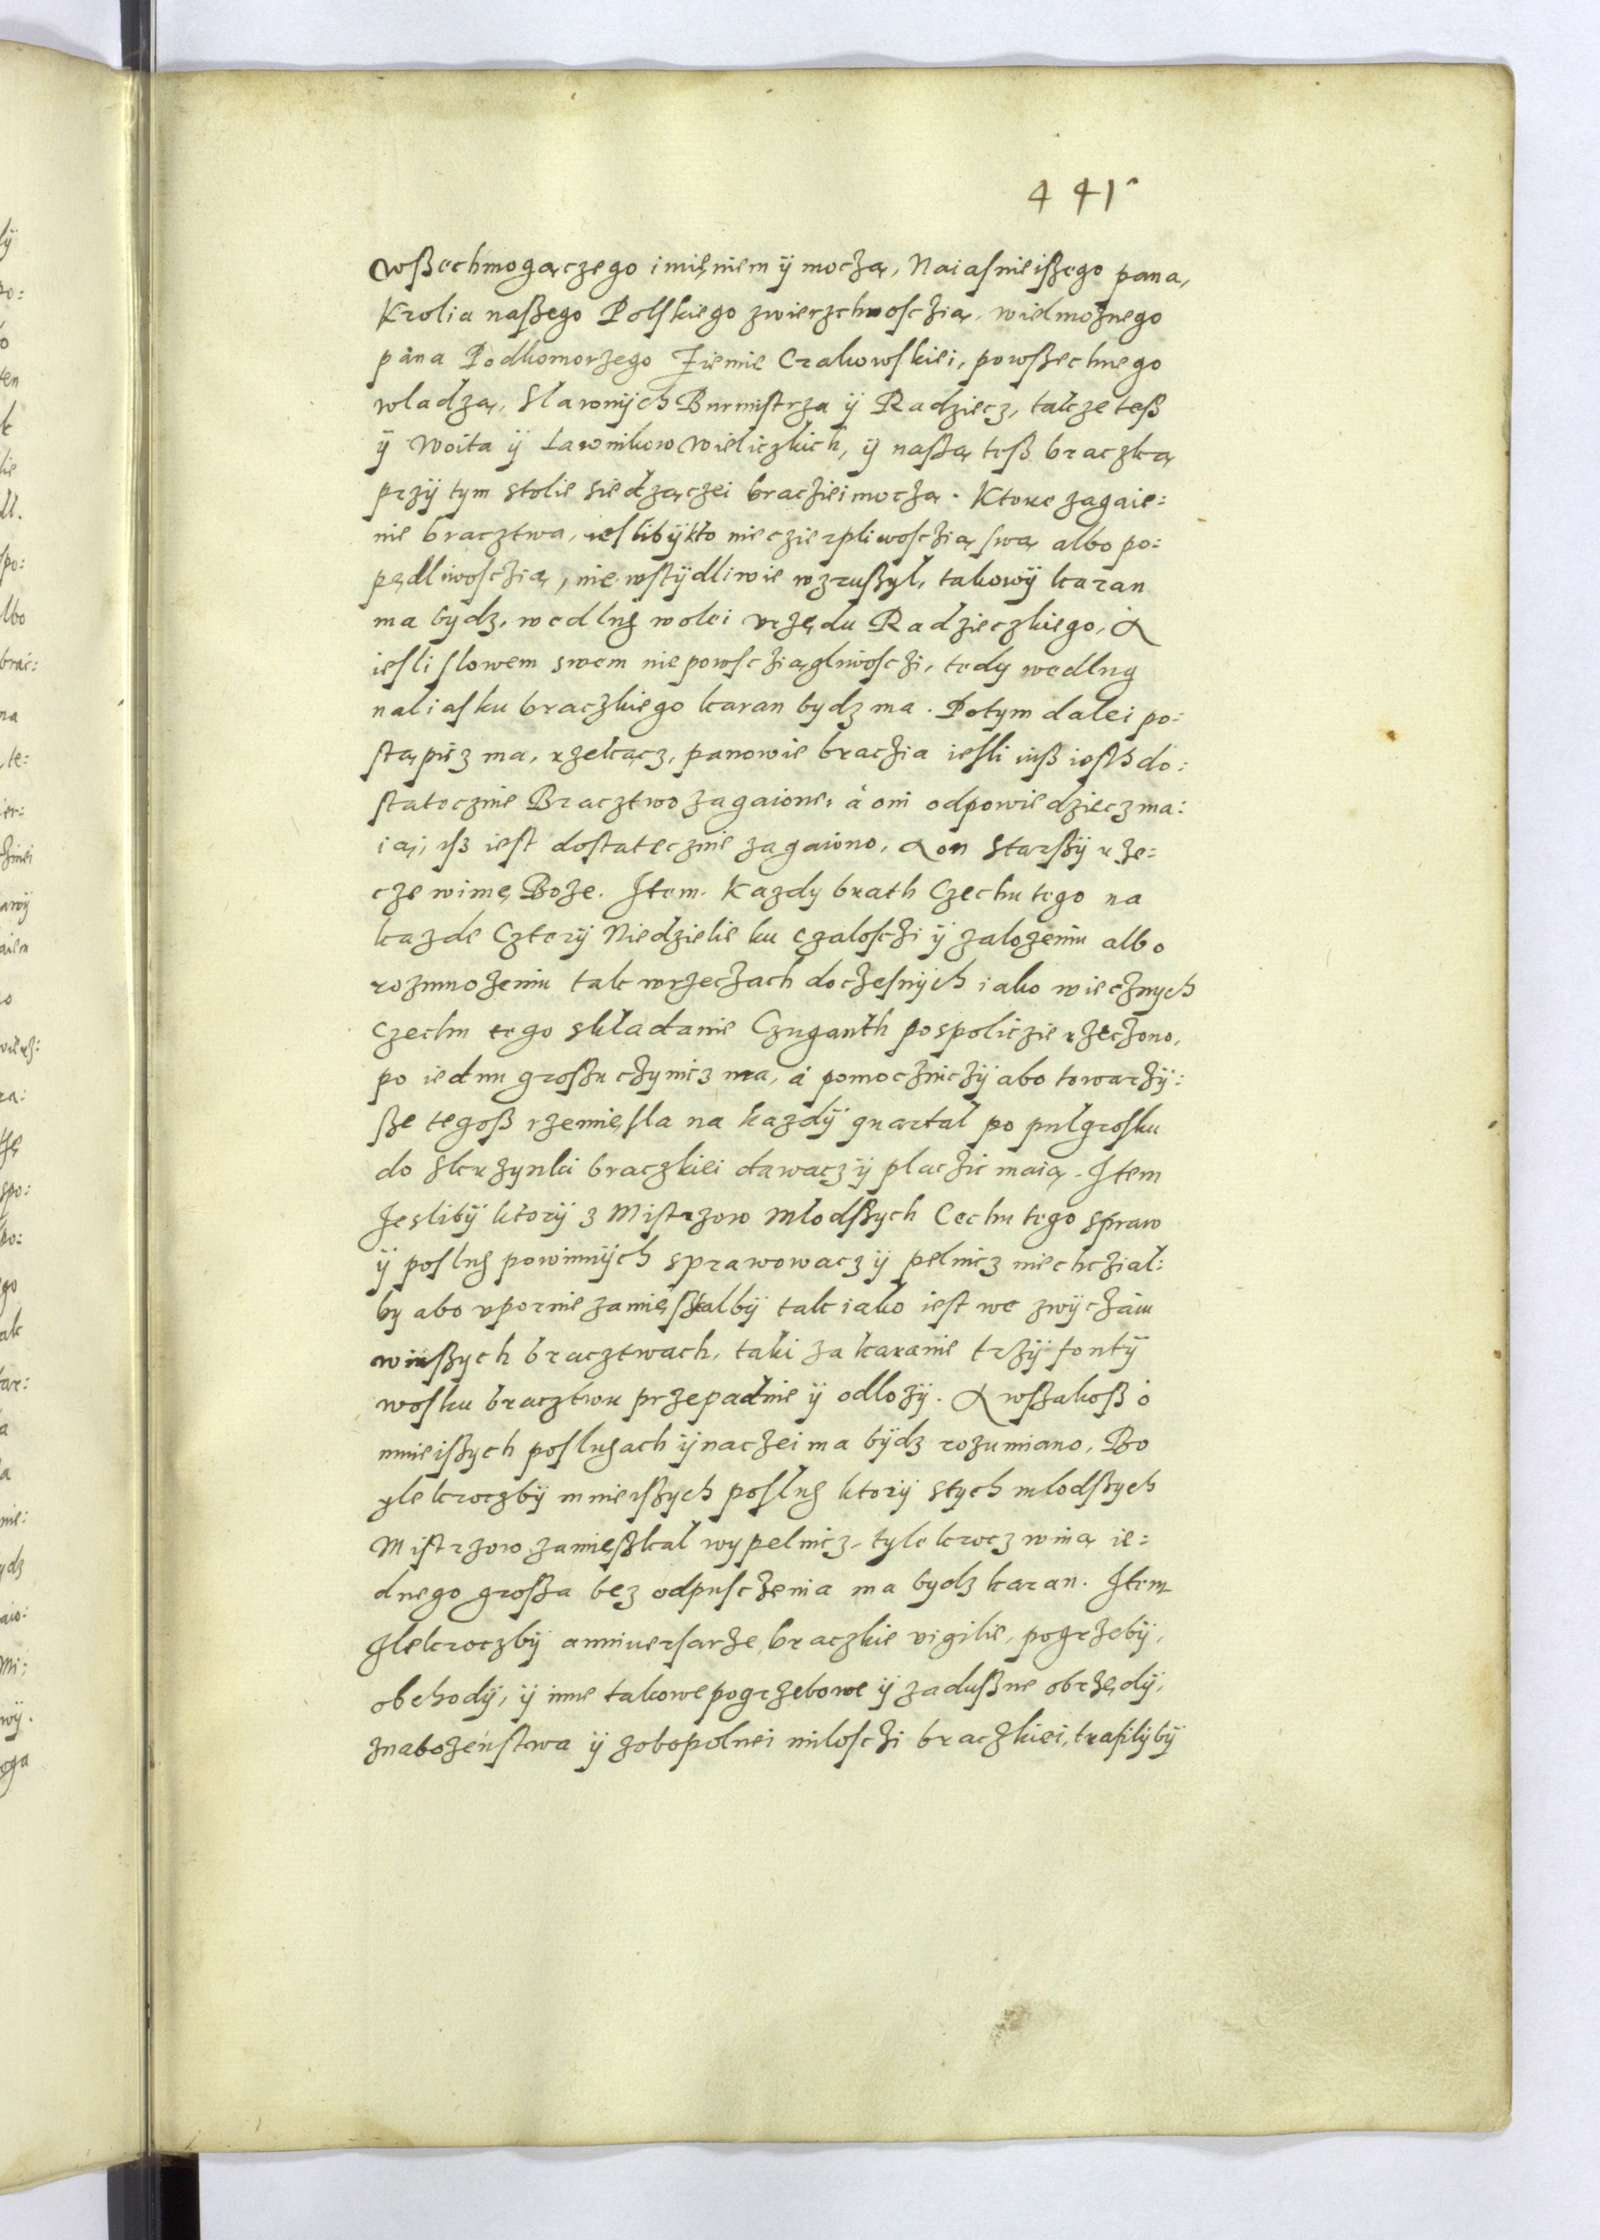 441
wßechmogączego imięniem ÿ moczą, Naiasnieißego pana,
Krolia naßego Polskiego zwierzchnosczią, wielmożnego
pána Podkomorzego Ziemie Crakowskiei, powßechnego
wladzą, Slawnÿch Burmistrza ÿ Radziecz, takze teß
ÿ Woita ÿ Ławnikow Wieliczkich, ÿ naßą teß braczką
przÿ tym stolie siedzączei brácziei moczą. Ktore zagaie:
nie bracztwa, ieslibÿ kto nieczierpliwosczią swą albo po:
pędliwosczią, nie wstÿdliwie wzrußył, takowÿ karan
ma bydz, wedlug wolei vrzędu Radzieczkiego, A
iesli slowem swem niepowsczięgliwosczi, tedy wedlug
naliasku braczkiego karan bydz ma. Potym dalei po:
stąpicz ma, rzekącz, panowie braczia iesli iuß iesth do:
statecznie Bracztwo zagaione, á oni odpowiedziecz ma:
ią, iß iest dostatecznie zagaiono, A on Starßÿ rze:
cze wimę Boże. Item. Kazdy brath Czechu tego na
kazde Czterÿ Niedzielie ku czalosczi ÿ zalozeniu albo
rozmnożeniu tak wrzeczach doczesnÿch iako wiecznych
Czechu tego składanie Czuganth pospoliczie rzeczono,
po iednu großu czynicz ma, á pomocniczÿ abo towarzÿ:
ße tegoß rzemięsla na kazdÿ quartał po pulgrosku
do Skrzynki braczkiei dawacz ÿ placzic maią. Item
Jeslibÿ ktorÿ z Mistrzow Młodßych Cechu tego spraw
ÿ poslug powinnÿch sprawowacz ÿ pelnicz niechcział:
by abo vpornie zamięßkalbÿ tak iako iest we zwÿczáiu
winßych bracztwach, taki za karanie trzÿ fontÿ
wosku bracztwu przepadnie ÿ odlozÿ. A wßakoß ó
mnieißych poslugach ÿnaczei ma bÿdz rozumiano, Bo
ylekroczbÿ mnieißych posług ktorÿ stych mlodßych
Mistrzow zamięßkal wypelnicz, tylekrocz winą ie:
dnego großa bez odpusczenia ma bydz karan. Item
Jlekroczbÿ anniuersarze braczkie vigilie, pogrzebÿ,
obchodÿ, ÿ inne takowe pogrzebowe ÿ zadußne obrzędÿ,
znabożeństwa ÿ zobopolnei milosczi braczkiei, trafilÿ bÿ